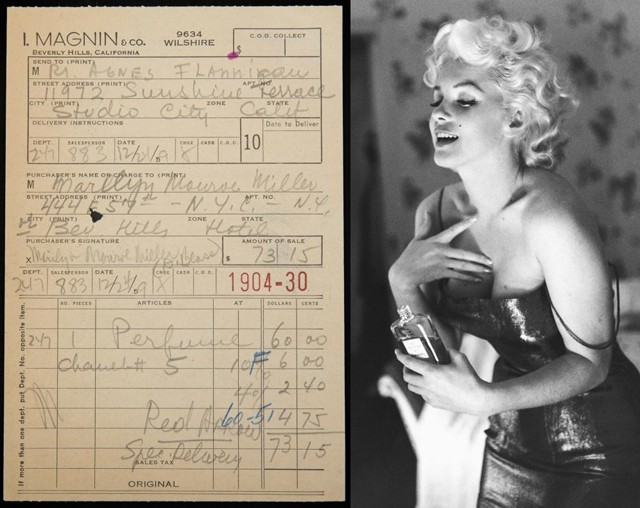 I. MAGNIN & CO.
BEVERLY HILLS, CALIFORNIA
9634
WILSHIRE
C.O.D. COLLECT
$
SEND TO (PRINT)
M AGNES FLANNIGAN
STREET ADDRESS (PRINT) APT. NO.
11972 Sunshine Terrace
CITY (PRINT) ZONE STATE
Studio City Calif
DELIVERY INSTRUCTIONS
10
Date to Deliver
DEPT. SALESPERSON DATE CHGE CASH C.O.D.
247 883
PURCHASER'S NAME OR CHARGE TO (PRINT)
M Marilyn Monroe Miller
STREET ADDRESS (PRINT) APT. NO.
444 E 57th - N.Y.C. - N.Y.
CITY (PRINT) ZONE STATE
Bev Hills Hotel
PURCHASER'S SIGNATURE
AMOUNT OF SALE
x Marilyn Monroe Miller
$ 73 15
DEPT. SALESPERSON DATE CHGE CASH C.O.D.
247 883
1904-30
NO. PIECES ARTICLES AT DOLLARS CENTS
247 1 Perfume 60 00
Chanel # 5 10 F 6 00
4% 2 40
Red 60-51 4 75
73 15
Spec Delivery
SALES TAX
ORIGINAL
If more than one dept. put Dept. No. opposite item.